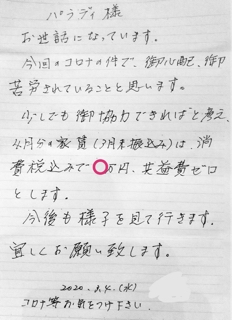 パラディ様
お世話になっています。
今回のコロナの件で、御心配、御
苦労されていることと思います。
少しでも御協力できればと考え、
4月分の家賃(3月末振込み)は、消
費税込みで〇万円、共益費ゼロ
とします。
今後も様子を見て行きます。
宜しくお願い致します。
2020.3.4.(水)
コロナ等お気をつけ下さい